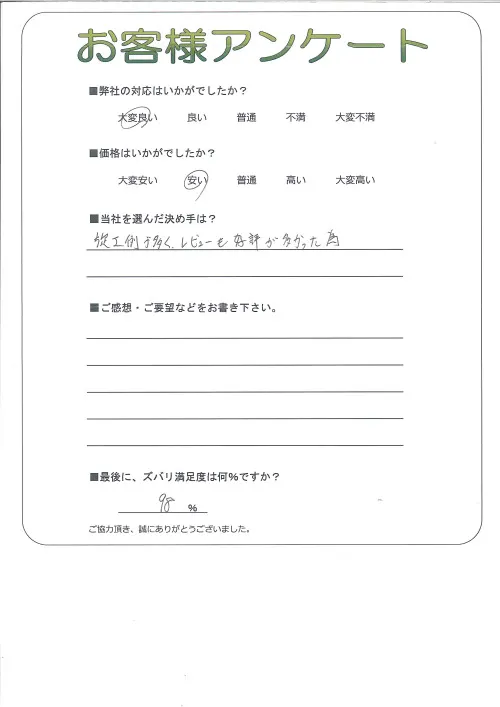 お客様アンケート
■弊社の対応はいかがでしたか？
大変良い 良い 普通 不満 大変不満
■価格はいかがでしたか？
大変安い 安い 普通 高い 大変高い
■当社を選んだ決め手は？
施工例が多く、レビューも好評が多かった為
■ご感想・ご要望などをお書き下さい。
■最後に、ズバリ満足度は何％ですか？
98 %
ご協力頂き、誠にありがとうございました。